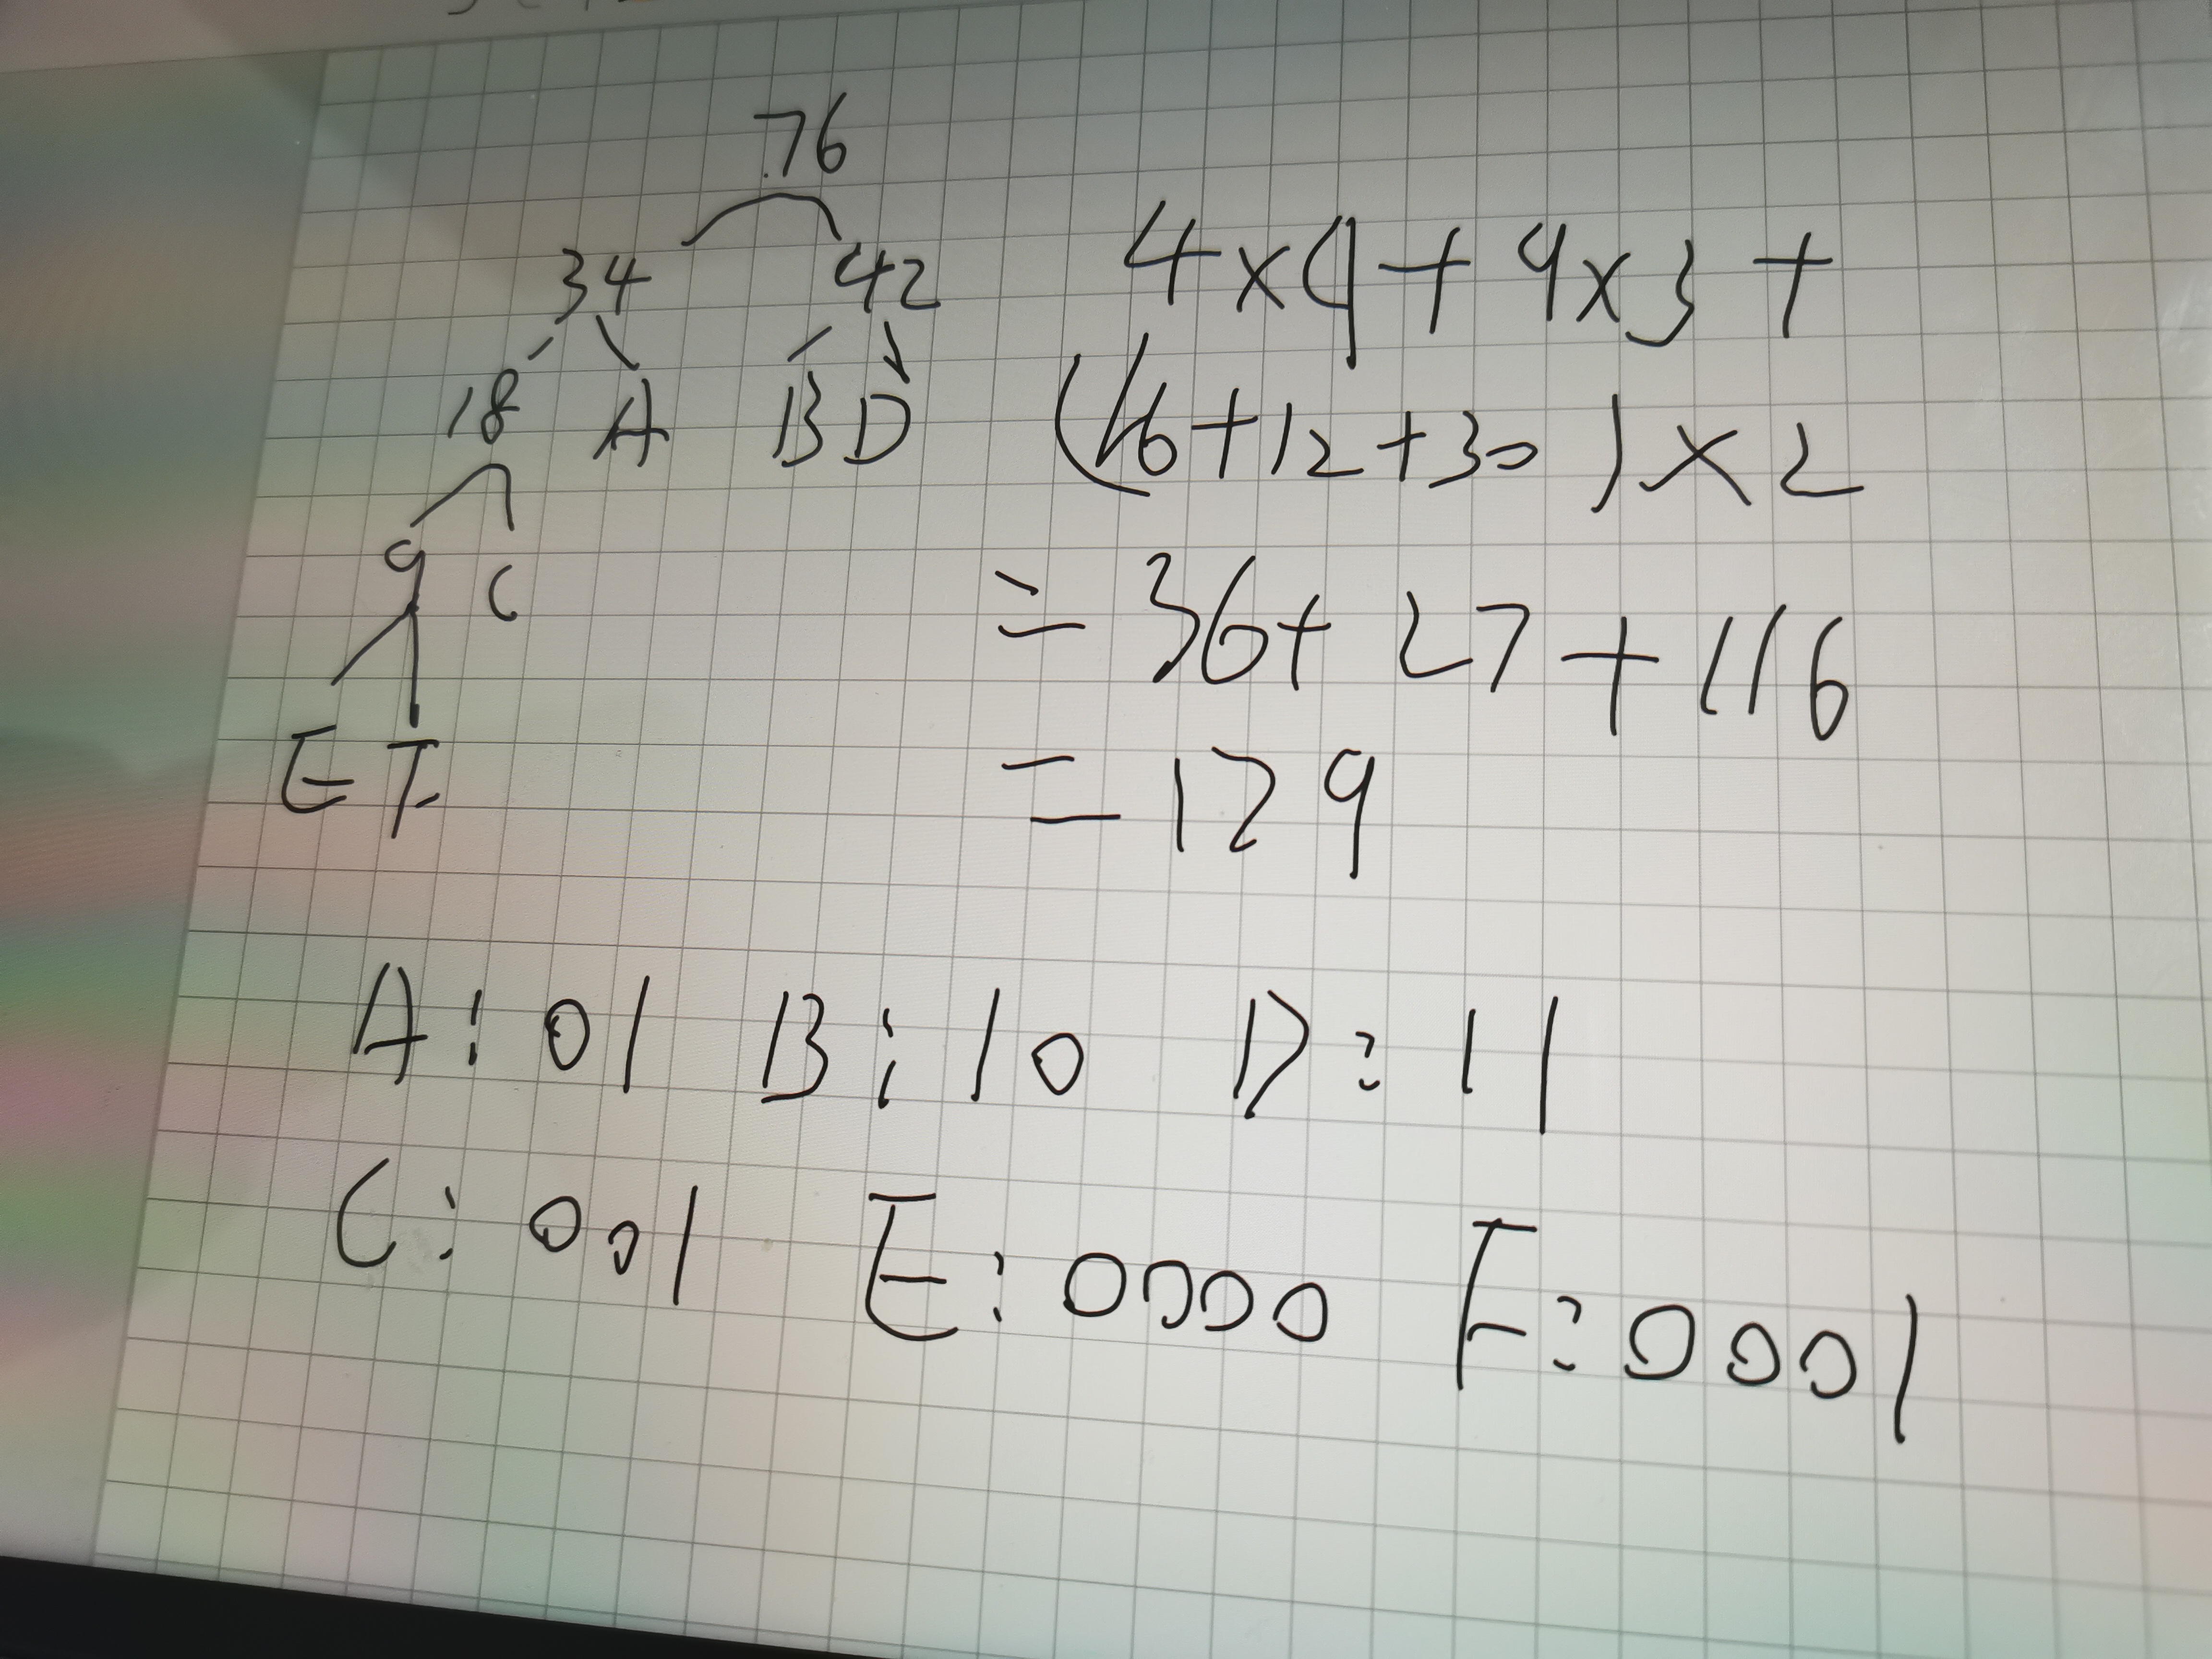 76
34 42
18 A B D
9 C
E F
4×9+9×3+
(16+12+30)×2
=36+27+116
=129
A:01 B:10 D:11
C:001 E:0000 F:0001